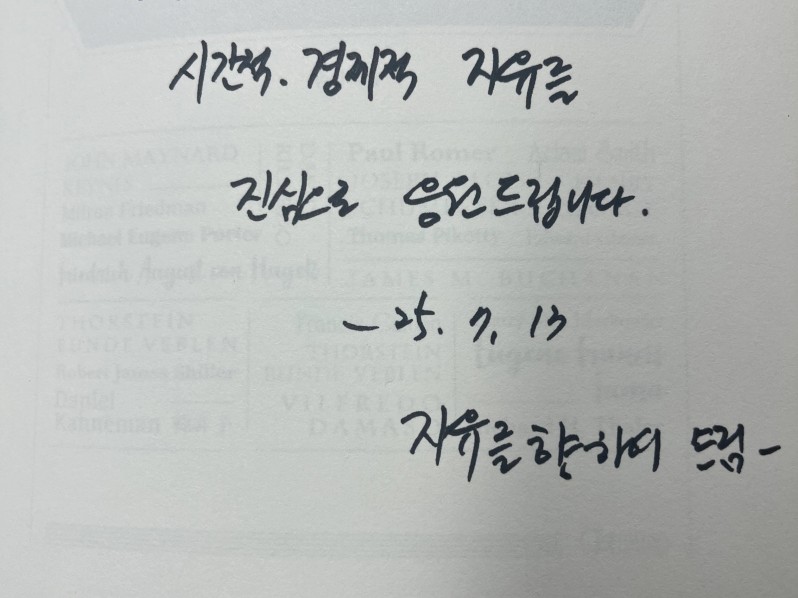 시간적. 경제적 자유를
JOHN MAYNARD
Paul Romer
Adam Smith
진심으로 응원드립니다.
Milton Friedman
Michael Eugene Porter
Thomas Piketty
Friedrich August von Hayek
JAMES M. BUCHANAN
- 25. 7. 13
THORSTEIN
BUNDE VEBLEN
THORSTEIN
BUNDE VEBLEN
Robert James Shiller
Daniel
VILFREDO
자유를향하여 드림-